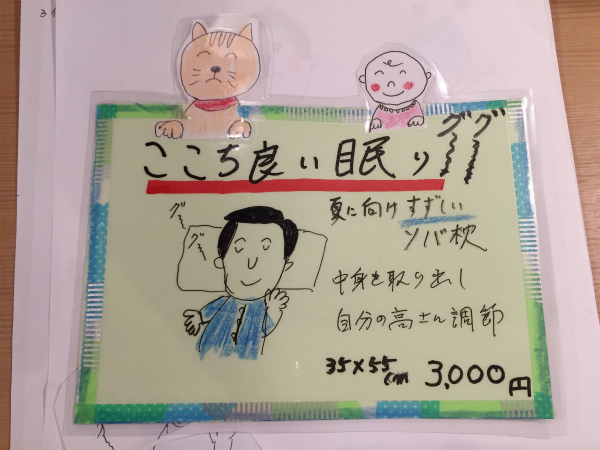 ここち良い眠り
グググ
グー
グー
夏に向けすずしい
ソバ枕
中身を取り出し
自分の高さに調節
35×55cm
3,000円